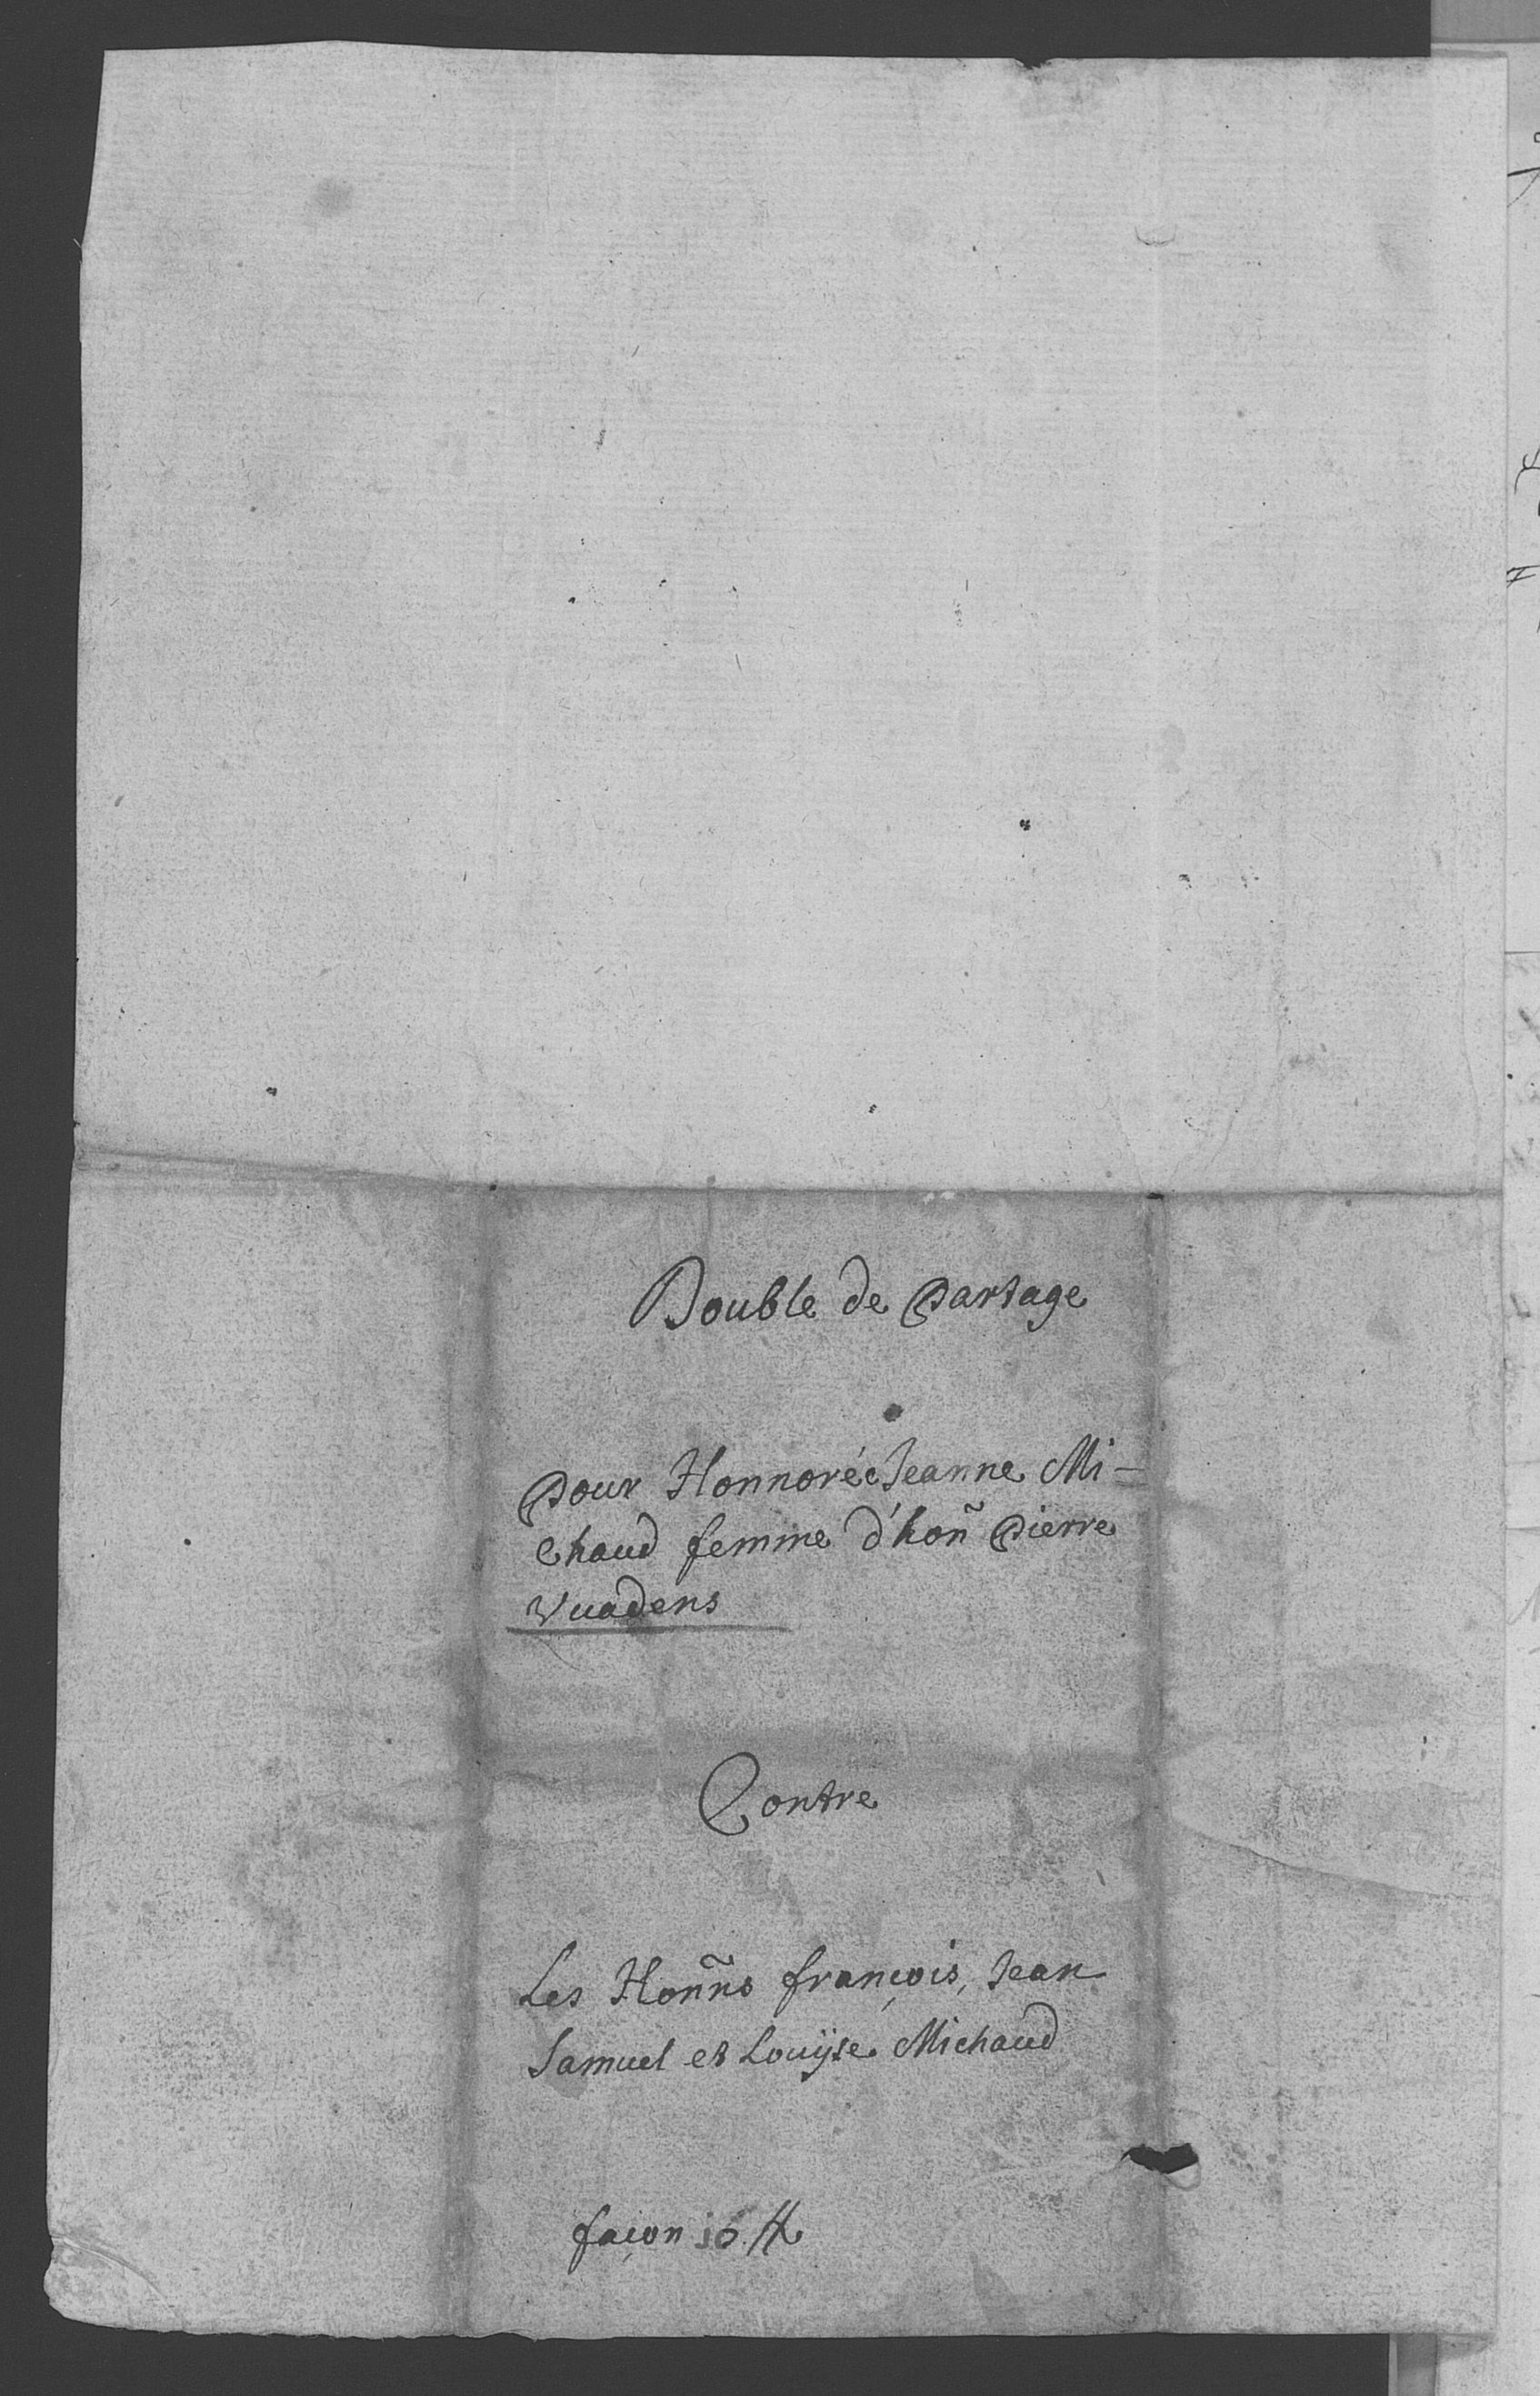 Double de Partage
Pour Honnorée Jeanne Mi-
chaud femme d'hon̄ Pierre
Vuadens
Contre
Les Hon̄ns françois, Jean
Samuel et Louÿse Michaud
façon